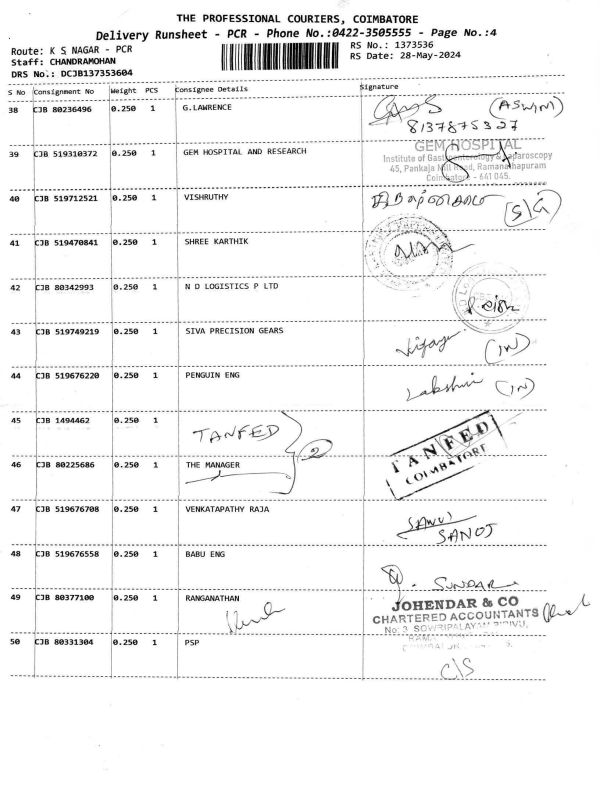 THE PROFESSIONAL COURIERS, COIMBATORE
Delivery Runsheet - PCR - Phone No.:0422-3505555 - Page No.:4
Route: K S NAGAR - PCR
RS No.: 1373536
Staff: CHANDRAMOHAN
RS Date: 28-May-2024
DRS No.: DCJB137353604
S No Consignment No Weight PCS Consignee Details Signature
38 CJB 80236496 0.250 1 G.LAWRENCE (ASWIN)
8137875327
39 CJB 519310372 0.250 1 GEM HOSPITAL AND RESEARCH
GEM HOSPITAL
Institute of Gastroenterology & Laparoscopy
45, Pankaja Mill Road, Ramanathapuram
Coimbatore - 641 045.
40 CJB 519712521 0.250 1 VISHRUTHY (S/G)
41 CJB 519470841 0.250 1 SHREE KARTHIK
42 CJB 80342993 0.250 1 N D LOGISTICS P LTD
43 CJB 519749219 0.250 1 SIVA PRECISION GEARS Vijaya (IN)
44 CJB 519676220 0.250 1 PENGUIN ENG Lakshmi (IN)
45 CJB 1494462 0.250 1 TANFED
2
46 CJB 80225686 0.250 1 THE MANAGER
TANFED
COIMBATORE
47 CJB 519676708 0.250 1 VENKATAPATHY RAJA
SANOJ
48 CJB 519676558 0.250 1 BABU ENG
SUNDAR
49 CJB 80377100 0.250 1 RANGANATHAN
JOHENDAR & CO
CHARTERED ACCOUNTANTS
No: 3 SOWRIPALAYAM PIRIVU,
50 CJB 80331304 0.250 1 PSP
C/S